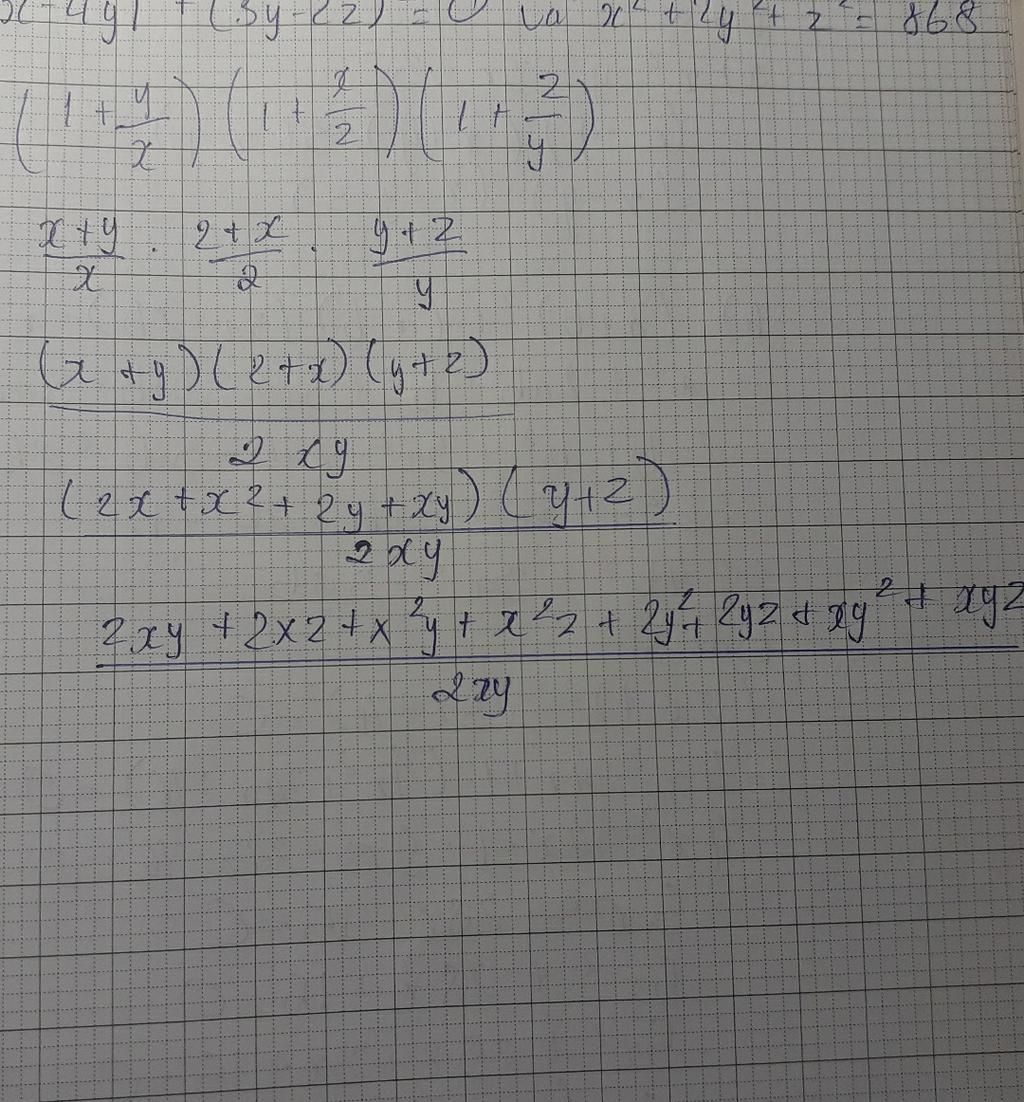 x - 4y) + (3y - 2z) = 0 và x² + 2y² + z² = 868
(1 + y/x) (1 + x/z) (1 + z/y)
x+y/x . z+x/z . y+z/y
(x+y)(z+x)(y+z)
z xy
(zx + x² + zy + xy) (y+z)
z xy
zxy + zxz + x²y + x²z + zy² + zyz + xy² + xyz
zxy